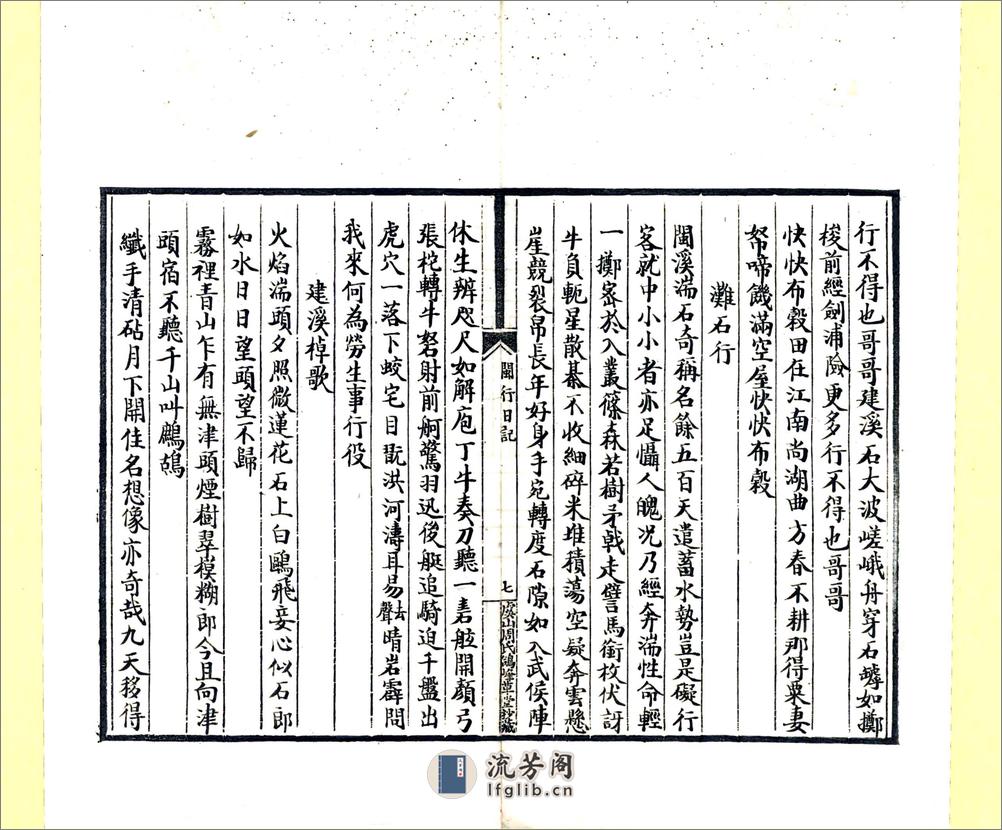 行不得也哥哥建溪石大波嵯峨舟穿石罅如擲
梭前經劍浦險更多行不得也哥哥
快快布穀田在江南尚湖曲方春不耕那得粟妻
帑啼饑滿空屋快快布穀
灘石行
閩溪湍石奇稱名餘五百天遣蓄水勢豈是礙行
客就中小小者亦足懾人魄况乃經奔湍性命輕
一擲峇於入叢篠森若樹矛戟走譬馬銜枚伏訝
牛負軛星散碁不收細碎米堆積蕩空疑奔雲懸
崖競裂帛長年好身手宛轉度石隙如入武侯陣
休生辨咫尺如解庖丁牛奏刀聽一砉舷開顏弓
張柁轉牛弩射前舸驚羽迅後艇追騎迫千盤出
虎穴一落下蛟宅目眂洪河濤耳易去聲晴岩霹問
我來何為勞生事行役
建溪棹歌
火焰湍頭夕照微蓮花石上白鷗飛妾心似石郎
如水日日望頭望不歸
霧裡青山乍有無津頭煙樹翠模糊郎今且向津
頭宿不聽千山叫鷓鴣
纖手清砧月下開佳名想像亦奇哉九天移得
閩行日記
七
虞山周氏鴿峰草堂鈔藏
流芳阁
lfglib.cn